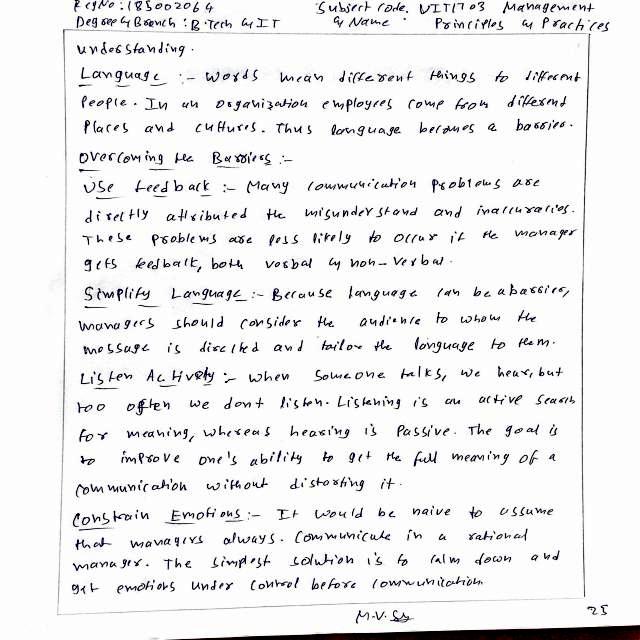 RegNo: 185002064 Subject code, UIT1703 Management
Degree & Branch : B.Tech & IT & Name : Principles & Practices
understanding.
Language :- Words mean different things to different
People. In an organization employees come from different
Places and cultures. Thus language becomes a barrier.
Overcoming the Barriers :-
Use feedback :- Many communication Problems are
directly attributed the misunderstand and inaccuracies.
These Problems are less likely to occur if the manager
gets feedback, both verbal & non-verbal.
Simplify Language :- Because language can be a barrier,
managers should consider the audience to whom the
message is directed and tailor the language to them.
Listen Actively :- When someone talks, we hear, but
too often we dont listen. Listening is an active search
for meaning, whereas hearing is Passive. The goal is
to improve one's ability to get the full meaning of a
communication without distorting it.
Constrain Emotions :- It would be naive to assume
that managers always. Communicate in a rational
manager. The simplest solution is to calm down and
get emotions under control before communication.
M.V.
25